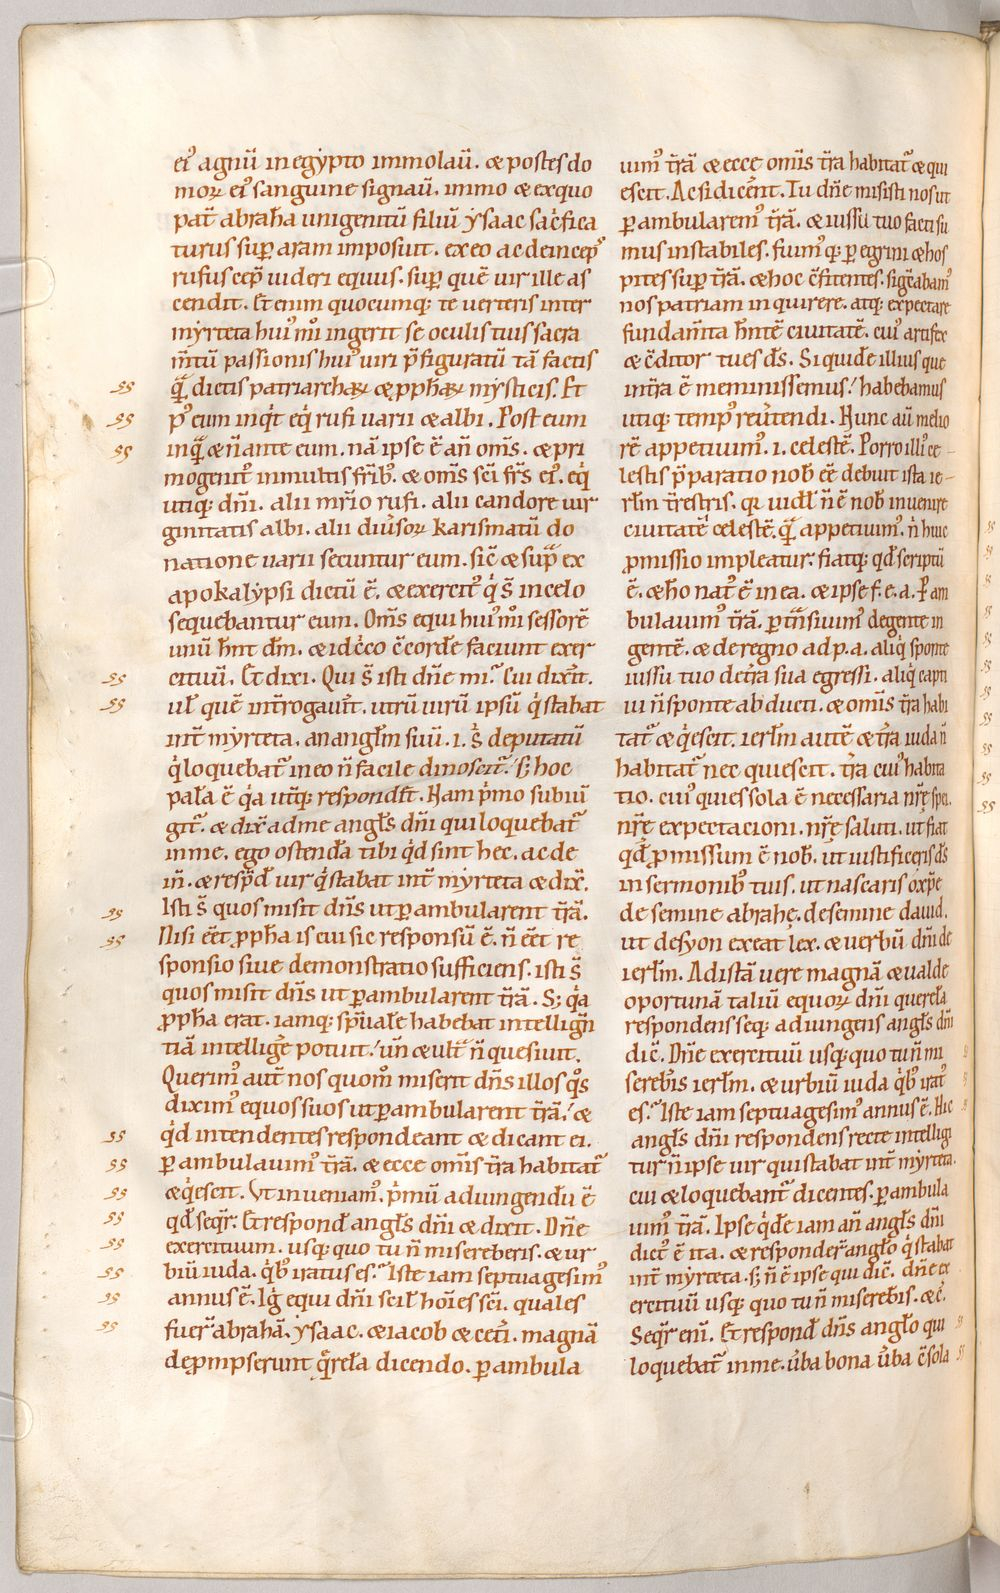 ei᷒ agnū in egẏpto immolaū. ⁊ postes do
moꝝ ei᷒ sanguine signaū. immo ⁊ ex quo
pat̄ abrahā unigenitū filiū ẏsaac sac̓fica
turus sup̄ aram imposuit. ex eo ac deincep᷒
rufus cep̄ uideri equus. sup̄ quē uir ille as
cendit. Et enim quocumq; te uerteris inter
mẏrteta hui᷒ m̊i ingerit se oculis tuis sacra
m̄tū passionis hui᷒ uiri p̄figuratū tā factis
ꝙ̄ dictis patriarchaꝝ ⁊ ꝓphaꝝ mẏsticis. Et
p᷒ eum inq̓t eq̓ rufi uarii ⁊ albi. Post eum
inq̄ ⁊ n̄ ante eum. nā ipse ē an̄ om̄s. ⁊ pri
mogenit᷒ in multis fr̄ib᷒. ⁊ om̄s sc̄i fr̄s ei᷒. eq̓
utiq; dn̄i. alii mr̄io rufi. alii candore uir
ginitatis albi. alii diūsoꝝ karismatū do
natione uarii secuntur eum. sic̄ ⁊ sup̄ ex
apokalẏpsi dictū ē. ⁊ exercit᷒ q̓ s̄ in celo
sequebantur eum. Om̄s equi hui᷒ m̊i sessorē
unū hn̄t dm̄. ⁊ idc̓co c̄corde faciunt exer
citiū. Et dixi. Qui s̄ isti dn̄e mi? Cui dixit̄.
ul̄ quē int̄rogauit̄. utrū uirū ipsū q̓ stabat
int̄ mẏrteta. an angl̄m suū. i. s̄ deputatū
q̓ loquebat̄ in eo n̄ facile dinoscit̄. s; hoc
palā ē q̓a utq; respondit̄. Nam p̓mo subiū
git̄. ⁊ dix̄ ad me angl̄s dn̄i qui loquebat̄
in me. ego ostendā tibi q̓d sint hec. ac de
in̄. ⁊ resp̄d̄ uir q̓ stabat int̄ mẏrteta ⁊ dix̄.
Isti s̄ quos misit dn̄s ut ꝑambularent t̄rā.
Nisi eēt ꝓpha is cui sic responsū ē. n̄ eēt re
sponsio siue demonstratio sufficiens. isti s̄
quos misit dn̄s ut ꝑambularent t̄rā. S; q̓a
ꝓpha erat. iamq; sp̄ualē habebat intellign̄
tiā intelligē potuit. un̄ ⁊ ult̄ n̄ quesiuit.
Querim᷒ aut̄ nos quom̊ miserit dn̄s illos q̊s
dixim᷒ equos suos ut ꝑambularent t̄rā. ⁊
q̓d intendentes respondeant ⁊ dicant ei.
ꝑambulauim᷒ t̄rā. ⁊ ecce om̄is t̄ra habitat̄
⁊ q̓escit. Vt inueniam᷒. p̓mū adiungendū ē
qd̄ seqr̄. Et respond̄ angl̄s dn̄i ⁊ dixit. Dn̄e
exercituum. usq; quo tu n̄ misereberis. ⁊ ur
biū iuda. q̓b᷒ iratus es. Iste iam septuagesim᷒
annus ē. Ig̓ equi dn̄i scil̄ hoīes sc̄i. quales
fuer̄ abrahā. ẏsaac. ⁊ iacob ⁊ cet̓i. magnā
deꝓmpserunt q̄relā dicendo. ꝑambula
uim᷒ t̄rā ⁊ ecce om̄is t̄ra habitat̄ ⁊ qui
escit. Ac si dicer̄nt. Tu dn̄e misisti nos ut
ꝑambularem᷒ t̄rā. ⁊ iussu tuo facti su
mus instabiles. fuim᷒q; ꝑegrini ⁊ hos
pites sup̄ t̄rā. ⁊ hoc c̄fitentes. signē abam᷒
nos patriam inquirere. atq; expectare
fundam̄ta hn̄tē ciuitatē. cui᷒ artifex
⁊ c̄ditor tu es d̄s. Si quidē illius que
intra ē meminissemus. habebamus
utiq; temp᷒ reūtendi. Nunc aū melio
rē appetiuim᷒. i. celestē. Porro illi᷒ ce
lestis p̄paratio nob̄ eē debuit ista ie
rl̄m t̄restris. qr uidl̄ n̄ ē nob̄ inuenire
ciuitatē celestē. ꝙ̄ appetiuim᷒. n̄ huic
ꝓmissio impleatur. fiatq; qd̄ scriptū
ē. ⁊ ho nat᷒ ē in ea. ⁊ ipse f. e. a. ꝑam
bulauim᷒ t̄rā. ꝑt̄nsiuim᷒ de gente in
gentē. ⁊ de regno ad p. a. aliq̓ sponte
iussu tuo de t̄ra sua egressi. aliq̓ capti
ui n̄ sponte abducti. ⁊ om̄is t̄ra habi
tat̄ ⁊ q̓escit. ierl̄m autē ⁊ t̄ra iuda n̄
habitat̄ nec quiescit. t̄ra cui᷒ habita
tio. cui᷒ quies sola ē necessaria nr̄ę spei.
nr̄ę expectacioni. nr̄ę saluti. ut fiat
qd̄ ꝓmissum ē nob̄. ut iustificeris d̄s
in sermonib᷒ tuis. ut nascaris o xp̄e
de semine abrahę. de semine dauid.
ut de sẏon exeat lex. ⁊ uerbū dn̄i de
ierl̄m. Ad istā uere magnā ⁊ ualde
oportunā taliū equoꝝ dn̄i querelā
respondens seq; adiungens angl̄s dn̄i
dic̄. Dn̄e exercituū usq; quo tu n̄ mi
serebīs ierl̄m. ⁊ urbiū iuda q̓b᷒ irat᷒
es. Iste iam septuagesim᷒ annus ē. Hic
angl̄s dn̄i respondens recte intelligi
tur n̄ ipse uir qui stabat int̄ mẏrteta.
cui ⁊ loquebant̄ dicentes. ꝑambula
uim᷒ t̄rā. Ipse q̓dē iam an̄ angl̄s dn̄i
dict᷒ ē ita. ⁊ responder̄ angl̄o q̓ stabat
int̄ mẏrteta. s; n̄ ē ipse qui dic̄. dn̄e ex
ercituū usq; quo tu n̄ miserebīs. ⁊ c̄.
Seqr̄ enī. Et respond̄ dn̄s angl̄o qui
loquebat̄ in me. ūba bona ūba c̄sola